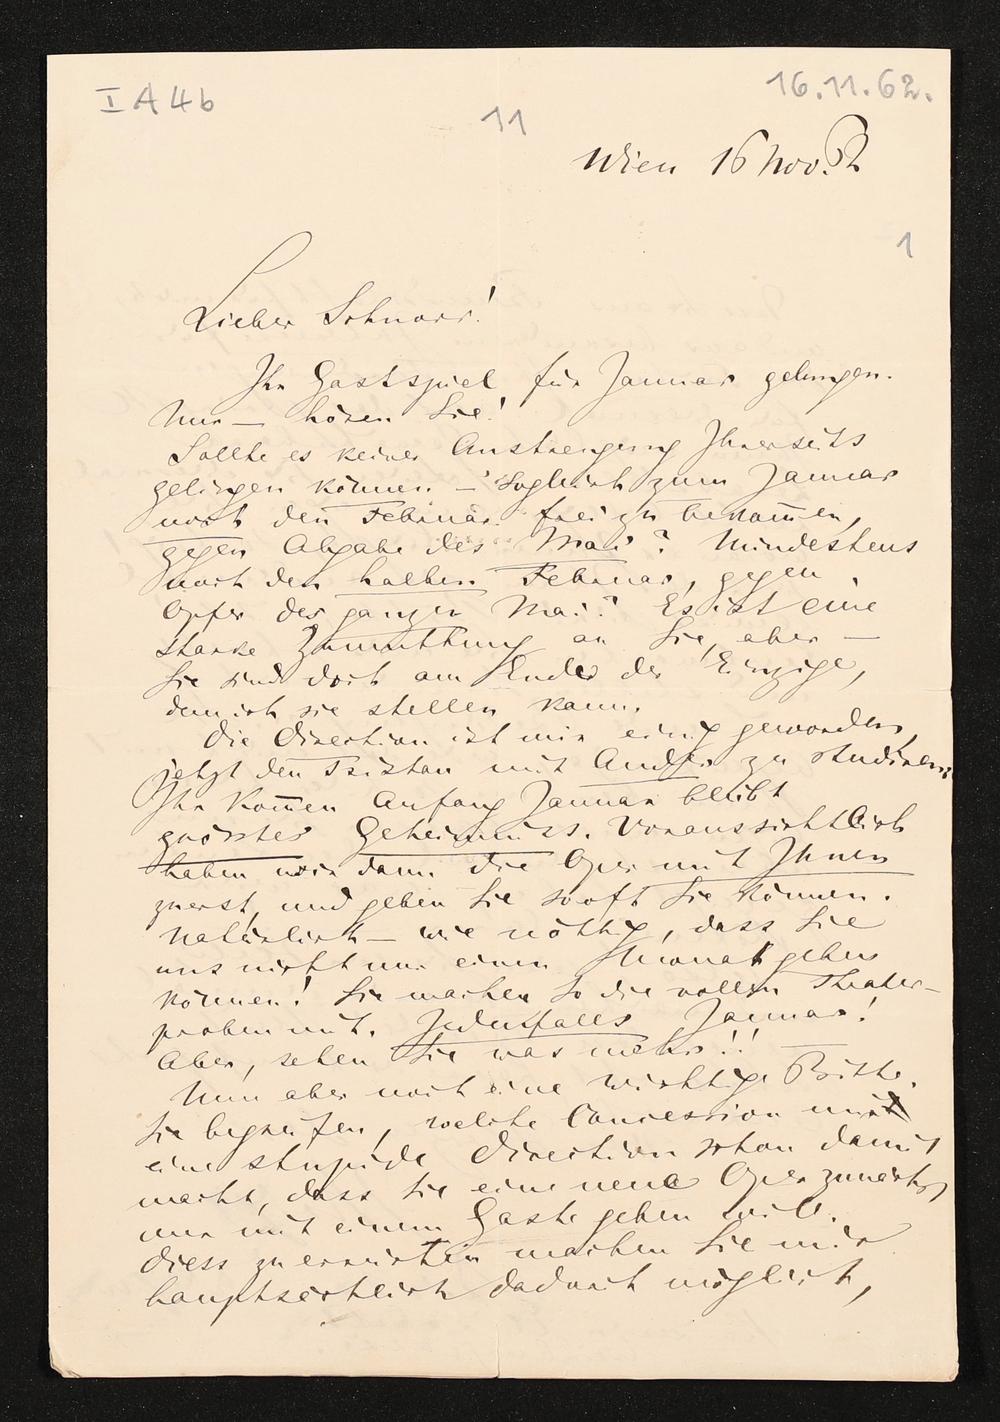 I A 4 b
16.11.62.
11
Wien 16 Nov. 62
1
Lieber Schnorr!
Ihr Gastspiel für Januar gelungen.
Nun — hören Sie!
Sollte es keiner Anstrengung Ihrerseits
gelingen können — sogleich zum Januar
noch den Februar frei zu bekom̅en,
gegen Abgabe des Mai? Mindestens
noch den halben Februar, gegen
Opfer des ganzen Mai? Es ist eine
starke Zumuthung an Sie, aber —
Sie sind doch am Ende der Einzige,
dem ich sie stellen kann.
Die Direction ist mir einig geworden,
jetzt den Tristan mit Ander zu studiren.
Ihr Kom̅en Anfang Januar bleibt
grösstes Geheimniss. Voraussichtlich
haben wir dann die Oper mit Ihnen
zuerst, und geben Sie so oft Sie können.
Natürlich — wie nöthig, dass Sie
uns nicht nur einen Monat geben
können! Sie machen so die vollen Theater-
proben mit. Jedenfalls Januar!
Aber, sehen Sie was mehr!!
Nun aber noch eine wichtige Bitte.
Sie begreifen, welche Concession mir
eine stupide Direction schon damit
macht, dass sie eine neue Oper zunächst
nur mit einem Gaste geben will.
Diess zu erwirken machen Sie mir
hauptsächlich dadurch möglich,